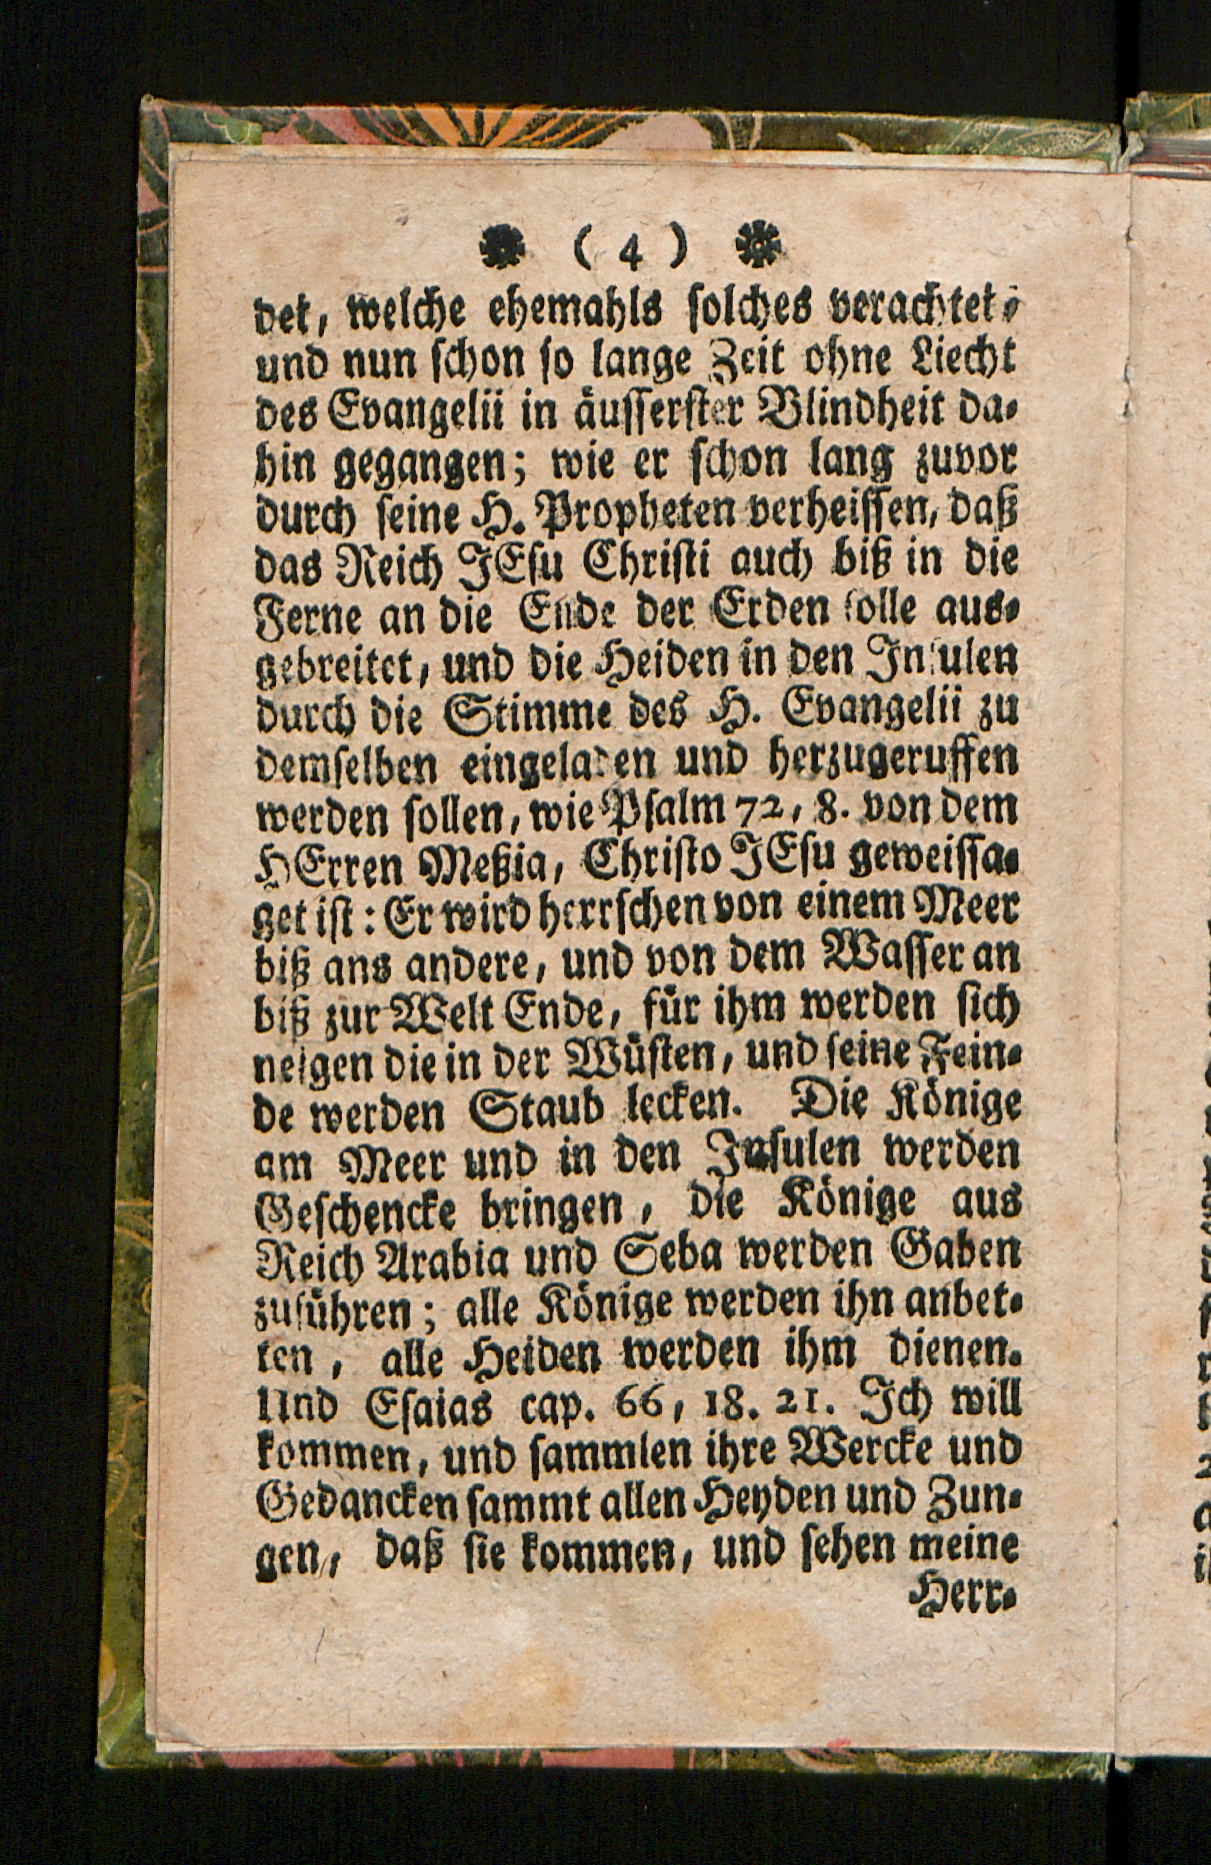 ( 4 )
det, welche ehemahls solches verachtet;
und nun schon so lange Zeit ohne Liecht
des Evangelii in äusserster Blindheit da-
hin gegangen; wie er schon lang zuvor
durch seine H. Propheten verheissen, daß
das Reich JEsu Christi auch biß in die
Ferne an die Ende der Erden solle aus-
gebreitet, und die Heiden in den Insulen
durch die Stimme des H. Evangelii zu
demselben eingeladen und herzugeruffen
werden sollen, wie Psalm 72, 8. von dem
HErren Meßia, Christo JEsu geweissa-
get ist: Er wird herrschen von einem Meer
biß ans andere, und von dem Wasser an
biß zur Welt Ende, für ihm werden sich
neigen die in der Wüsten, und seine Fein-
de werden Staub lecken. Die Könige
am Meer und in den Insulen werden
Geschencke bringen, die Könige aus
Reich Arabia und Seba werden Gaben
zuführen; alle Könige werden ihn anbet-
ten, alle Heiden werden ihm dienen.
Und Esaias cap. 66, 18. 21. Ich will
kommen, und sammlen ihre Wercke und
Gedancken sammt allen Heyden und Zun-
gen, daß sie kommen, und sehen meine
Herr-